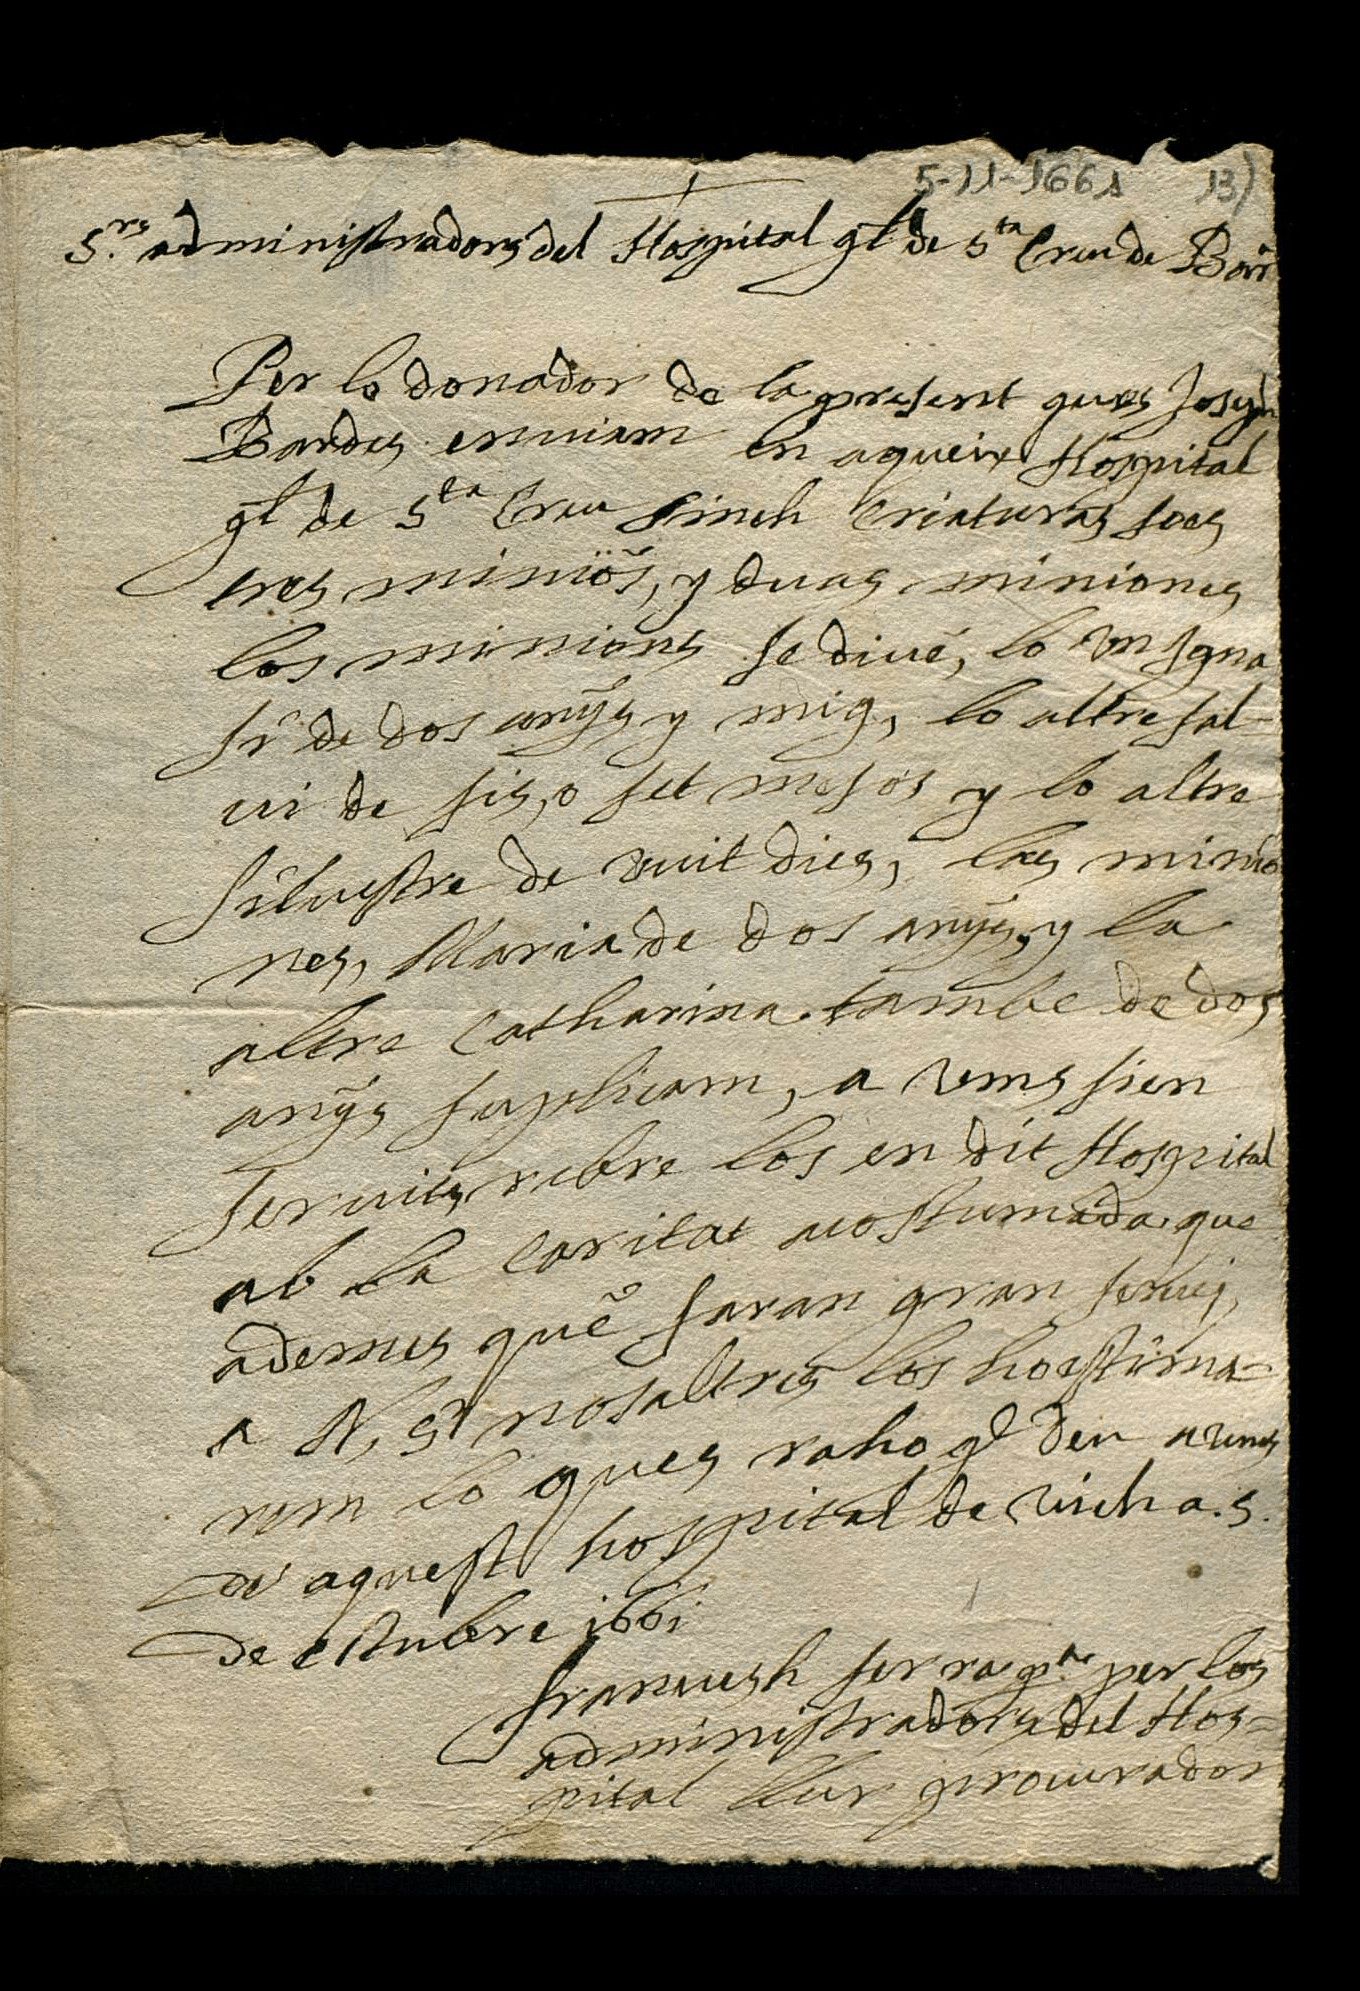 5-11-1661 13)
S.rs administradors del Hospital gl de Sta Creu de Barª
Per lo donador de la present ques Joseph
Bardes enviam en aqueix Hospital
gl de Sta Creu sinch Criaturas soes
tres miniõs, y duas miniones
los minions se diuẽ, lo vn Igna
si de dos anỹs y mig, lo altre sal-
ui de sis, o set mesos y lo altre
siluestre de vuit dies, las minio
nes, Maria de dos anỹs, y la
altre Catharina tambe de dos
anỹs suplicam, a vms sien
seruits rebre los en dit Hospital
ab la Caritat acostumada que
ademes quẽ faran gran seruej,
a N, Sr nosaltres los ho estima-
rem lo ques raho gl Deu a vms
de aquest hospital de vich a .5.
de octubre 1661
Francesh serra pre per los
administradors del Hos-
pital llur procurador